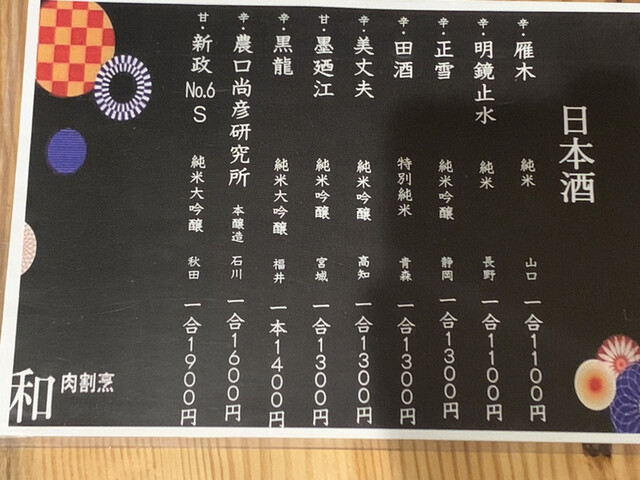 日本酒
辛・雁木 純米 山口 一合1100円
辛・明鏡止水 純米 長野 一合1100円
辛・正雪 純米吟醸 静岡 一合1300円
辛・田酒 特別純米 青森 一合1300円
辛・美丈夫 純米吟醸 高知 一合1300円
甘・墨廼江 純米吟醸 宮城 一合1300円
辛・黒龍 純米大吟醸 福井 一本1400円
辛・農口尚彦研究所 本醸造 石川 一合1600円
甘・新政No.6 S 純米大吟醸 秋田 一合1900円
和 肉割烹